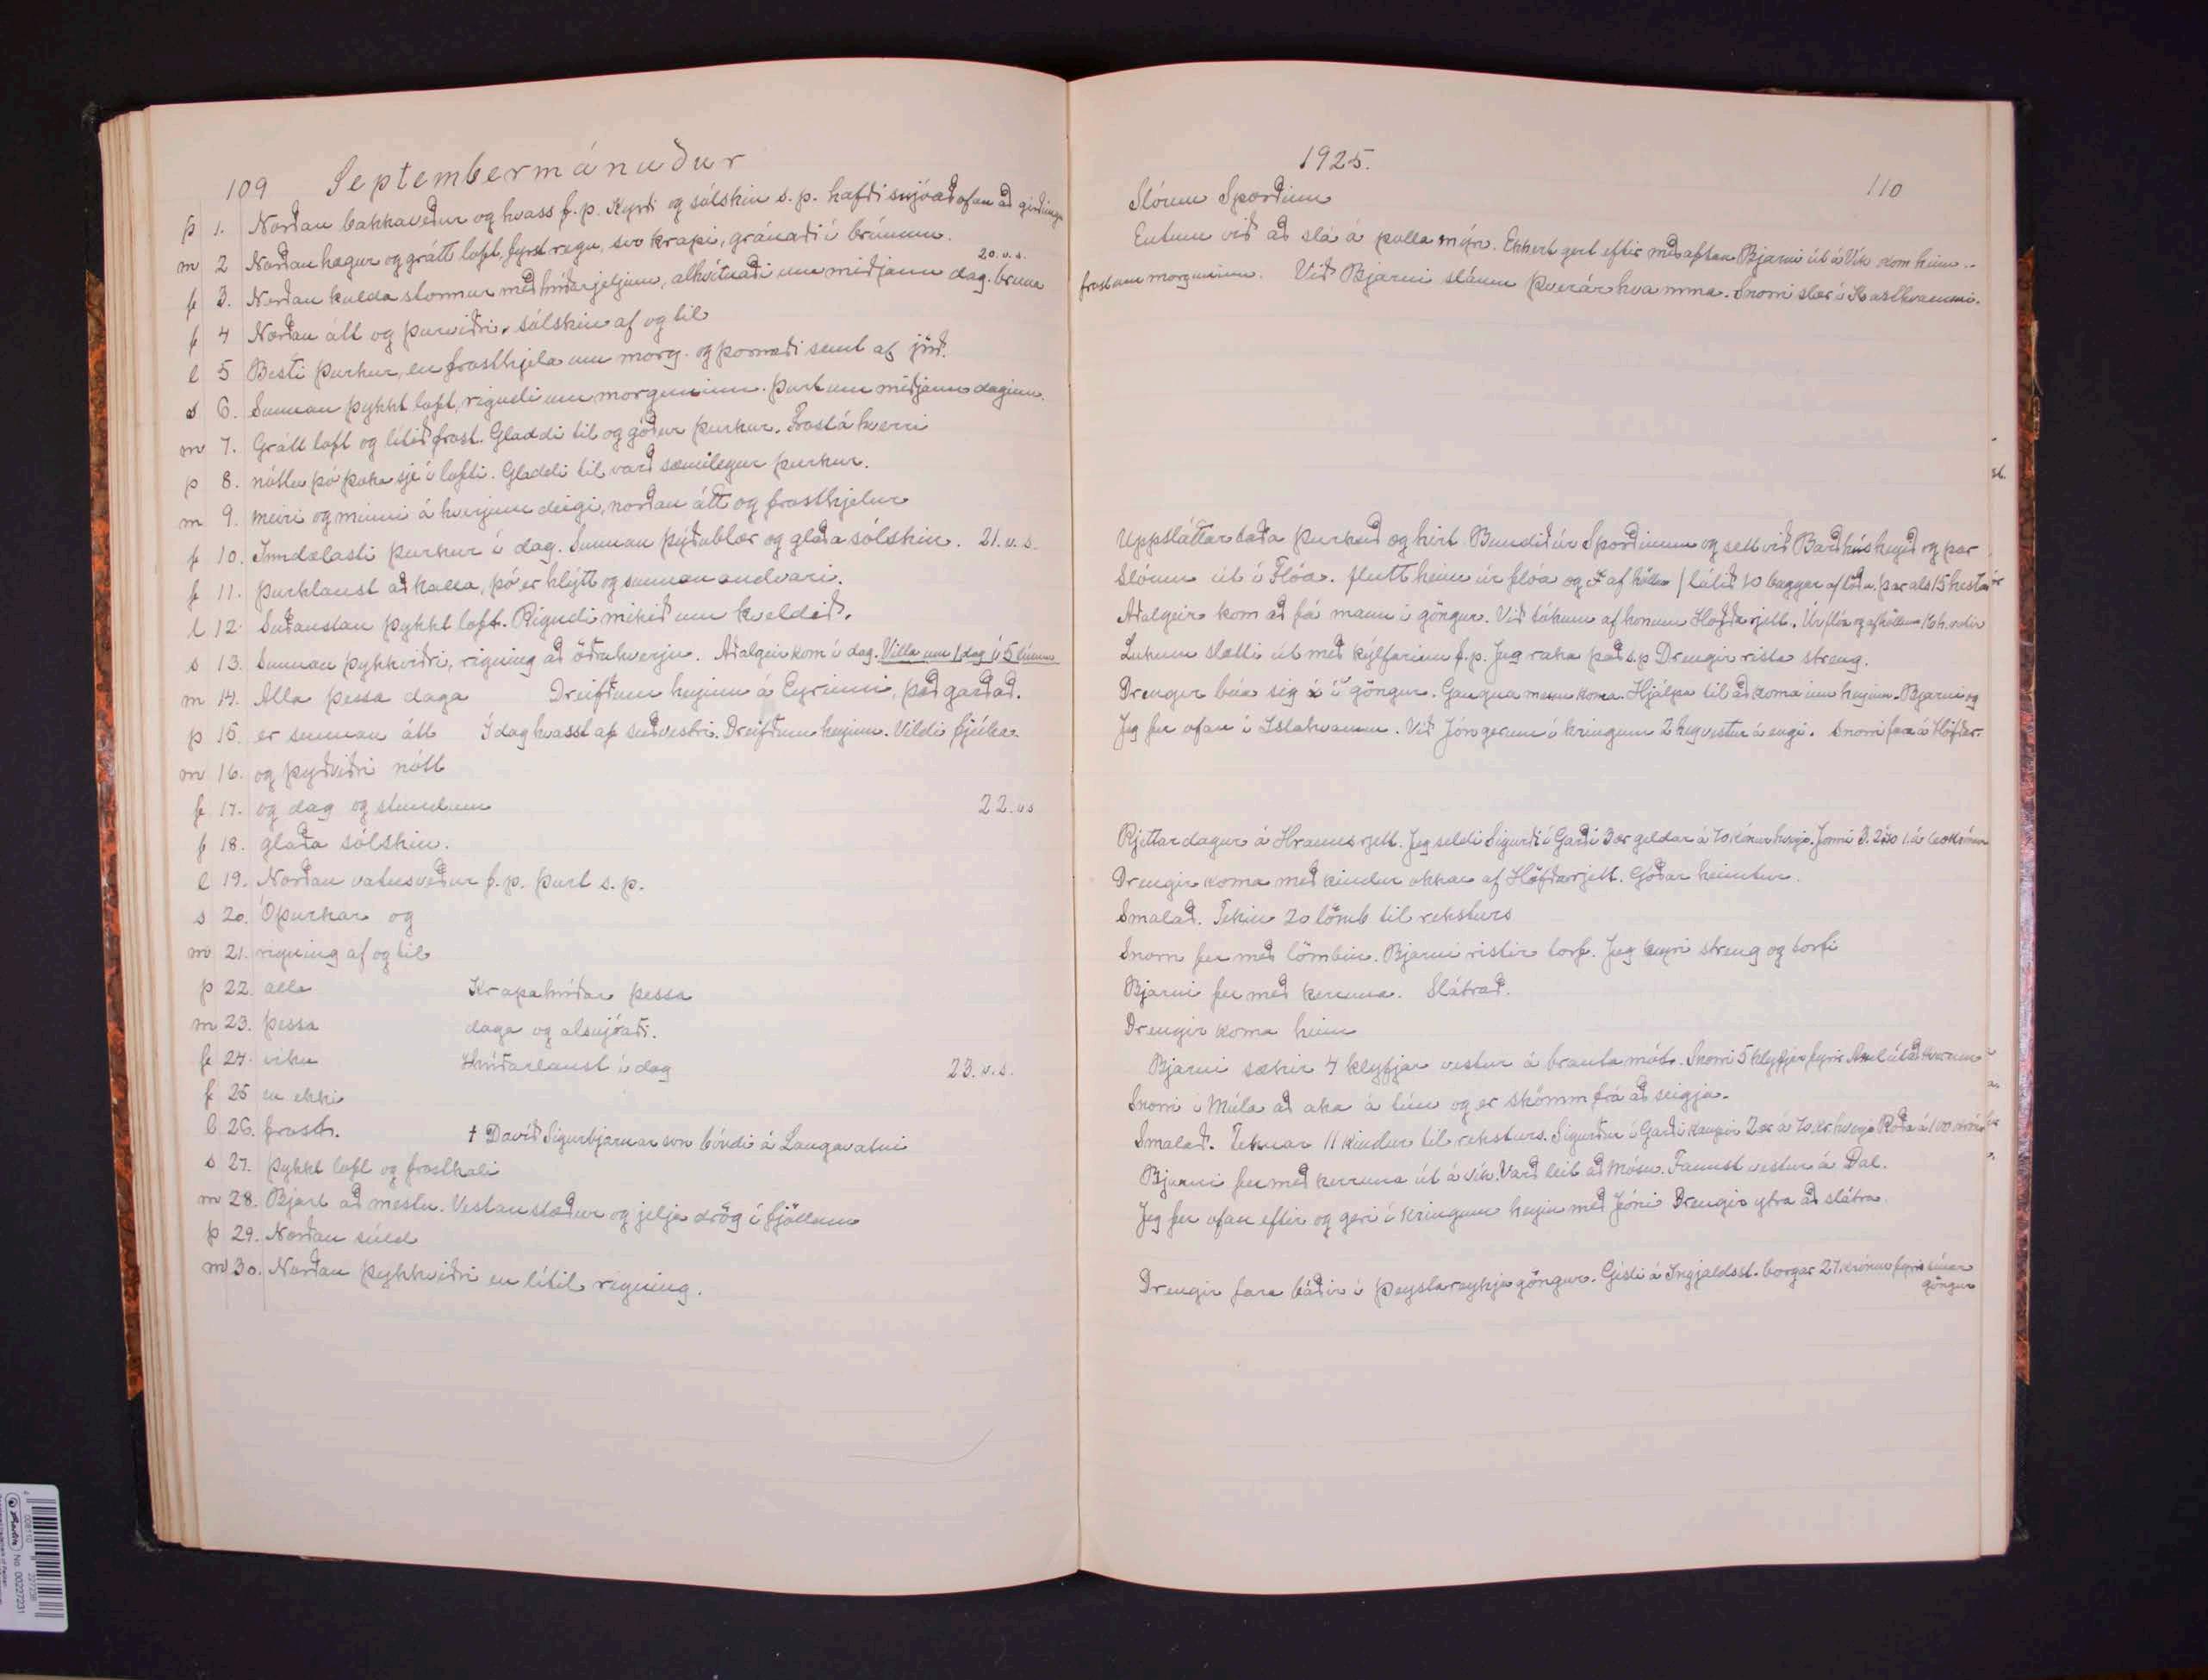 109 Septembermánuður
þ 1. Norðan bakkaveður og hvass f.p. Kyrði og sólskin s.p. hafði snjóað ofan að girðingu
m 2 Norðan hægur og grátt loft, fyrst regn, svo krapi, gránaði í brúnum.
20. v. s.
f 3. Norðan kulda stormur með hríðarjeljum, alhvítnaði um miðjann dag. bruna
f 4 Norðan átt og þurviðri, sólskin af og til
l 5 Besti þurkur, en frosthjela um morg. og þornaði seint af jörð.
s 6. Sunnan þykkt loft, rigndi um morguninn. þurt um miðjann daginn.
m 7. Grátt loft og lítið frost. Gladdi til og góður þurkur. Frost á hverri
þ 8. nóttu þó þoka sje í lofti. Gladdi til varð sæmilegur þurkur.
m 9. meiri og minni á hverjum deigi, norðan átt og frosthjelur
f 10. Inndælasti þurkur í dag. Sunnan þýðublær og glaða sólskin. 21. v. s.
f 11. þurklaust að kalla, þó er hlýtt og sunnan andvari.
l 12. Suðaustan þykkt loft. Rigndi mikið um kveldið.
s 13. Sunnan þykkviðri, rigning að öðruhverju. Aðalgeir kom í dag. Villa um 1 dag í 5 línum
m 14. Alla þessa daga Dreifðum heyinu á Eyrinni, það garðað.
þ 15. er sunnan átt Í dag hvasst af suðvestri. Dreifðum heyinu. Vildi fjúka.
m 16. og þýðviðri nótt
f 17. og dag og stundum 22. v s
f 18. glaða sólskin.
l 19. Norðan vatnsveður f.p. þurt s.p.
s 20. Óþurkar og
m 21. rigning af og til
þ 22. alla Krapahríðar þessa
m 23. þessa daga og alsnjóaði.
f 24. viku Hríðarlaust í dag 23. v. s.
f 25 en ekki
l 26. frost. † Davíð Sigurbjarnar son bóndi á Laugavatni
s 27. þykkt loft og frostkali
m 28. Bjart að mestu. Vestanstæður og jelja drög í fjöllum
þ 29. Norðan súld
m 30. Norðan þykkviðri en lítil rigning.
1925.
110
Slóum Sporðinn
Endum við að slá á palla mýri. Ekkert gert eftir miðaftan Bjarni út á Vík kom heim
frost um morguninn. Við Bjarni sláum Þverárhvamma. Snorri slær í Kasthvammi.
Uppsláttartaða þurkuð og hirt. Bundið úr Sporðinum og sett við Barðhúsheyið og þar
Slóum út í Flóa. flutt heim úr flóa og af höllu látið 10 baggar af töðu, þar als 15 hestar
Aðalgeir kom að fá mann í göngur. Við tókum af honum Höfðarjett. Úr flóa og af höllum 16 h.
Lukum slætti út með kýlfarinu f.p. Jeg raka það s.p Drengir rista streng.
Drengir búa sig í göngur. Gangna menn koma. Hjálpa til að koma inn heyinu. Bjarni og
Jeg fer ofan í Islahvamm. Við Jón gerum í kringum 2 hey vestur á engi. Snorri fara á Höfðar-
Rjettardagur á Hraunsrjett. Jeg seldi Sigurði í Garði 3 ær geldar á 70 krónur hverja.
Drengir koma með kindur okkar af Höfðarjett. Góðar heimtur.
Smalað. Tekin 20 lömb til reksturs
Snorri fer með lömbin. Bjarni ristir torf. Jeg keyri streng og torfi
Bjarni fer með kerruna. Slátrað.
Drengir koma heim
Bjarni sækir 4 klyfjar vestur á brautamót. Snorri 5 klyfjar fyrir
Snorri í Múla að aka á tún og er skömm frá að seigja.
Smalað. Teknar 11 kindur til reksturs. Sigurður í Garði kaupir 2 ær á 70 kr hverja á 100 krónur
Bjarni fer með kerruna út á vík. Varð leit að Mósu. Fannst vestur á Dal.
Jeg fer ofan eftir og geri í kringum heyin með Jóni Drengir ytra að slátra.
Drengir fara báðir í Þeystareykja göngur. Gísli á Ingjaldsst. borgar 27 krónur fyrir sínar
göngur
No. 00227231